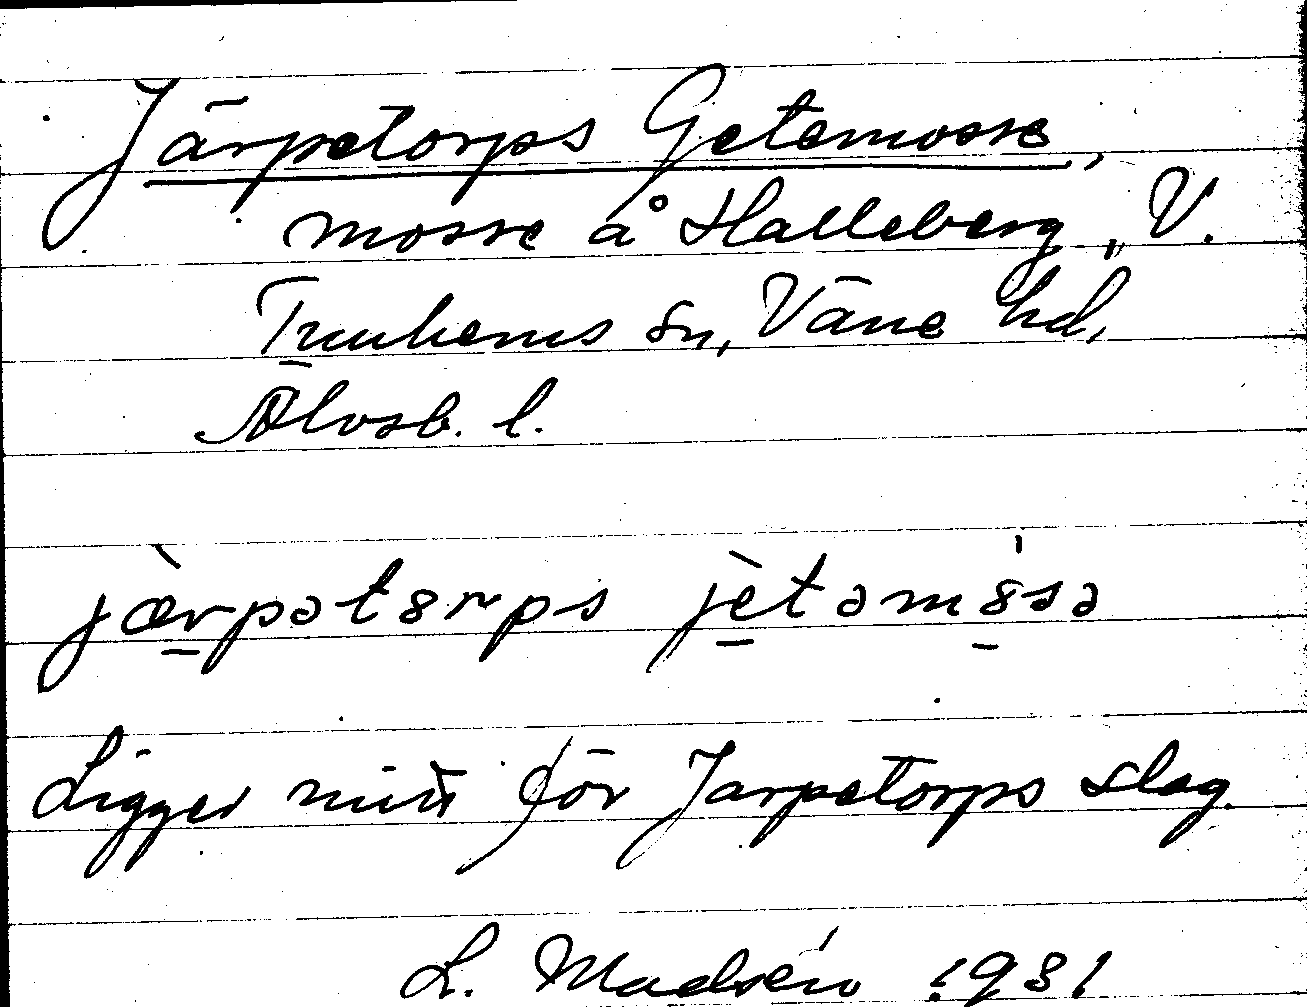 Järpetorps Getemosse,
mosse å Halleberg, V.
Tunhems sn, Väne hd,
Älvsb. l.
jæ̀rpət8rps jètəm8́sə
Ligger mitt för Järpetorps slag.
L. Madsén 1931